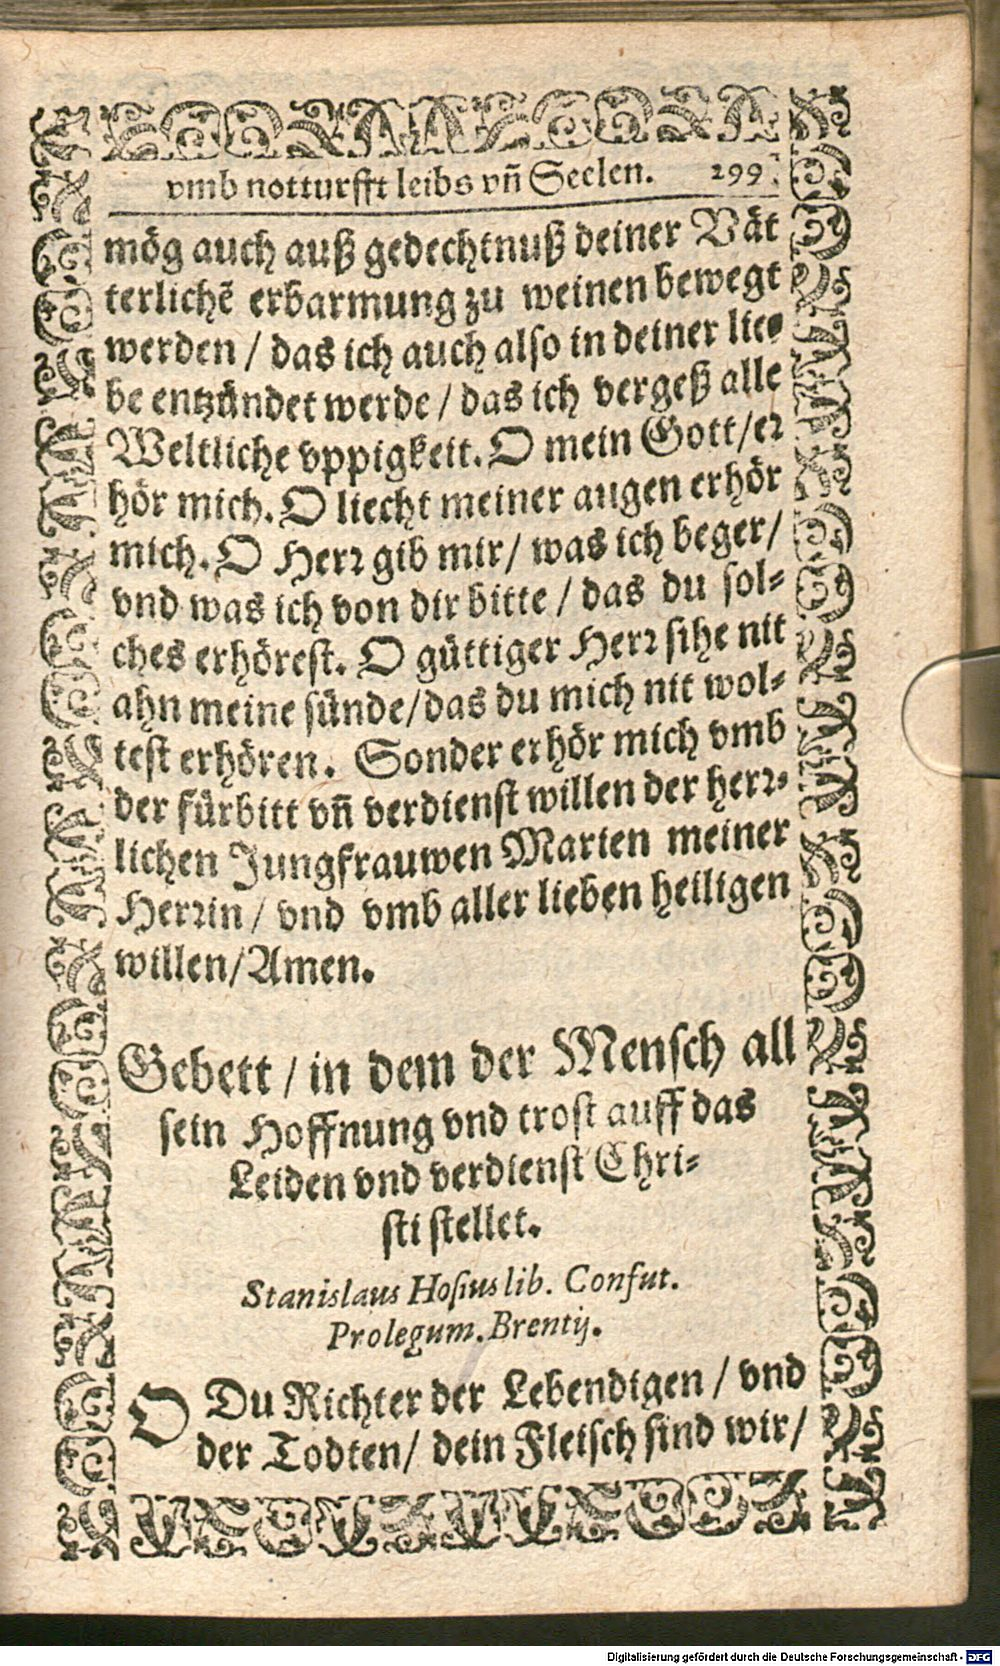 vmb notturfft leibs vñ Seelen. 299
mög auch auß gedechtnuß deiner Vät
terlichẽ erbarmung zu weinen bewegt
werden / das ich auch also in deiner lie-
be entzündet werde / das ich vergeß alle
Weltliche vppigkeit. O mein Gott/er
hör mich. O liecht meiner augen erhör
mich. O Herr gib mir/ was ich beger/
vnd was ich von dir bitte / das du sol-
ches erhörest. O güttiger Herr sihe nit
ahn meine sünde/das du mich nit wol-
test erhören. Sonder erhör mich vmb
der fürbitt vñ verdienst willen der herr-
lichen Jungfrauwen Marien meiner
Herrin / vnd vmb aller lieben heiligen
willen/Amen.
Gebett / in dem der Mensch all
sein Hoffnung vnd trost auff das
Leiden vnd verdienst Chri-
sti stellet.
Stanislaus Hosius lib. Confut.
Prolegum. Brentij.
O Du Richter der Lebendigen / vnd
der Todten/ dein Fleisch sind wir/
Digitalisierung gefördert durch die Deutsche Forschungsgemeinschaft - DFG